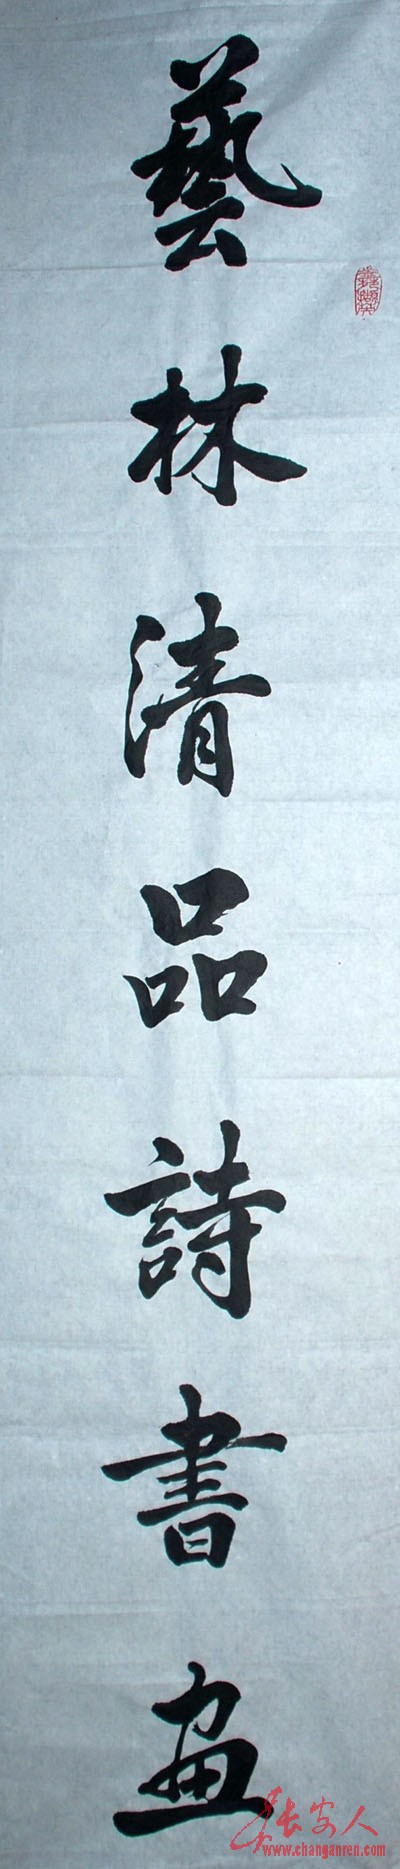 藝林清品詩書画
长安人
www.changanren.com